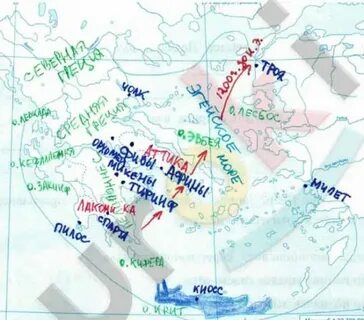 СЕВЕРНАЯ
ГРЕЦИЯ
1200г. до н.э.
ТРОЯ
ИОЛК
о.ЛЕСБОС
ЭГЕЙСКОЕ МОРЕ
СРЕДНЯЯ
ГРЕЦИЯ
о. ЭВБЕЯ
о. КЕФАЛЛЕНИЯ
АТТИКА
ФИВЫ
АФИНЫ
МИКЕНЫ
ТИРИНФ
о. ЗАКИНФ
МИЛЕТ
ЛАКОНИКА
СПАРТА
ПИЛОС
о. КИФЕРА
КНОСС
о.КРИТ